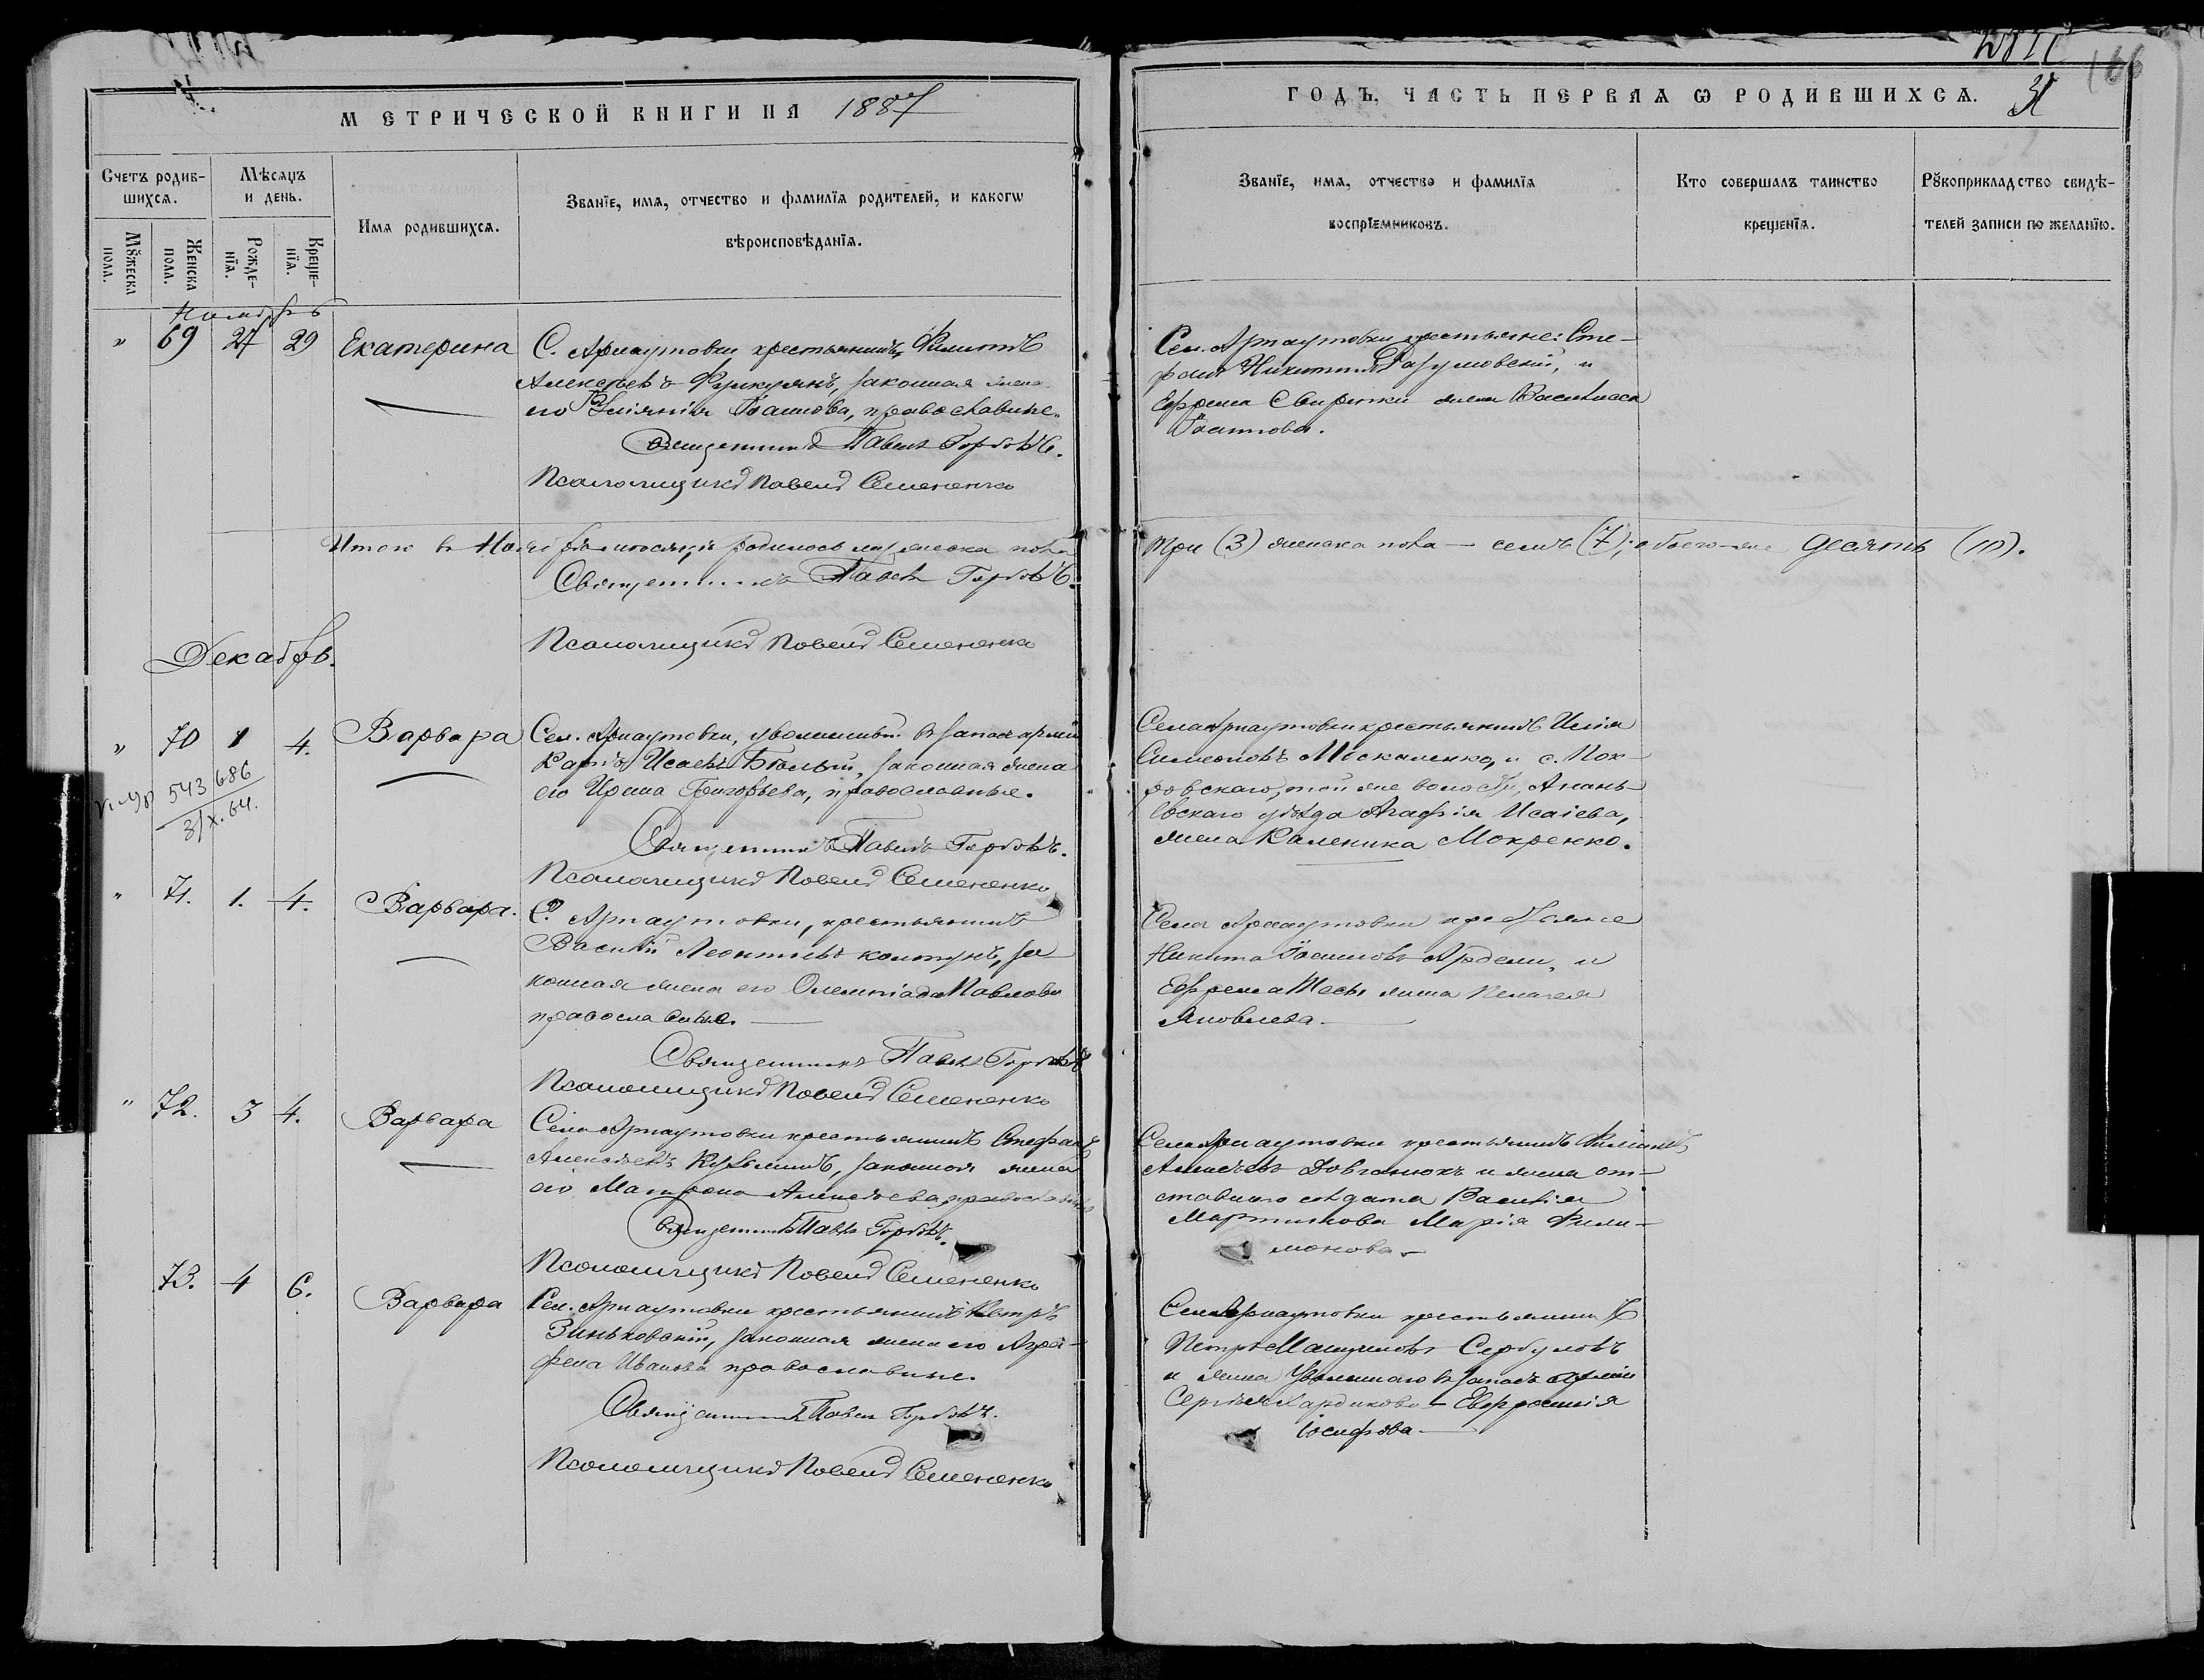 166
31
МЕТРИЧЕСКОЙ КНИГИ НА 1887
ГОДЪ, ЧАСТЬ ПЕРВАЯ Ѡ РОДИВШИХСЯ.
Счетъ родив-
шихся.
Мѣсяцъ
и день.
Имя родившихся.
Званїе, имя, отчество и фамилїя родителей, и какогѡ
вѣроисповѣданїя.
Мꙋжеска
пола.
Женска
пола.
Рожде-
нїя.
Креще-
нїя.
Званїе, имя, отчество и фамилїя
воспрїемниковъ.
Кто совершалъ таинство
крещенїя.
Рꙋкоприкладство свидѣ-
телей записи по желанїю.
Ноябрь
" 69 27 29 Екатерина
С. Арнаутовки крестьянинъ Филиппъ
Алексѣевъ законная жена
его Іоаннова, православные.
Священникъ Павелъ Горбовъ.
Псаломщикъ Павелъ Семененко
Сел. Арнаутовки крестьяне: Сте-
фанъ Никитинъ Разумовскій, и
Ефрема Свирипки жена Василиса
Іоаннова.
Итого в Ноябрѣ мѣсяцѣ родилось мужеска пола
Священникъ Павелъ Горбовъ.
Псаломщикъ Павелъ Семененко
три (3) женска пола — семь (7); обоего же десять (10).
Декабрь.
" 70 1 4. Варвара
543686
31/X.64.
Сел. Арнаутовки, уволенный в запас арміи
Карпъ Исаевъ Бѣлый, законная жена
его Ирина Григорьева, православные.
Священникъ Павелъ Горбовъ.
Псаломщикъ Павелъ Семененко
Села Арнаутовки крестьянинъ Илія
Симеоновъ Москаленко, и с. Пок-
ровскаго, той же волости, Анань-
евскаго уѣзда Агафія Исаіева,
жена Каленика Мокренко.
" 71. 1. 4. Варвара.
С. Арнаутовки, крестьянинъ
Василій Леонтіевъ Колтунъ, за
конная жена его Олемпіада Павлова
православные.
Священникъ Павелъ Горбовъ
Псаломщикъ Павелъ Семененко
Села Арнаутовки крестьяне
Никита Іоанновъ и
Ефрема жена Пелагея
Яковлева.
" 72. 3 4. Варвара
Села Арнаутовки крестьянинъ Стефанъ
Алексѣевъ Кузьминъ, законная жена
его Матрона Алексѣева православные
Священникъ Павелъ Горбовъ.
Псаломщикъ Павелъ Семененко
Села Арнаутовки крестьянинъ
Довганюкъ и жена от-
ставного солдата Василія
Мартинова Марія Фили-
монова.
73. 4 6. Варвара
Сел. Арнаутовки крестьянинъ Петръ
Зиньковскій, законная жена его Агра-
фена Иванова православные.
Священникъ Павелъ Горбовъ.
Псаломщикъ Павелъ Семененко
Села Арнаутовки крестьянинъ
Петръ Сербуловъ
и жена уволеннаго в запасъ арміи
Сергѣя — Евфросинія
Іосифова.